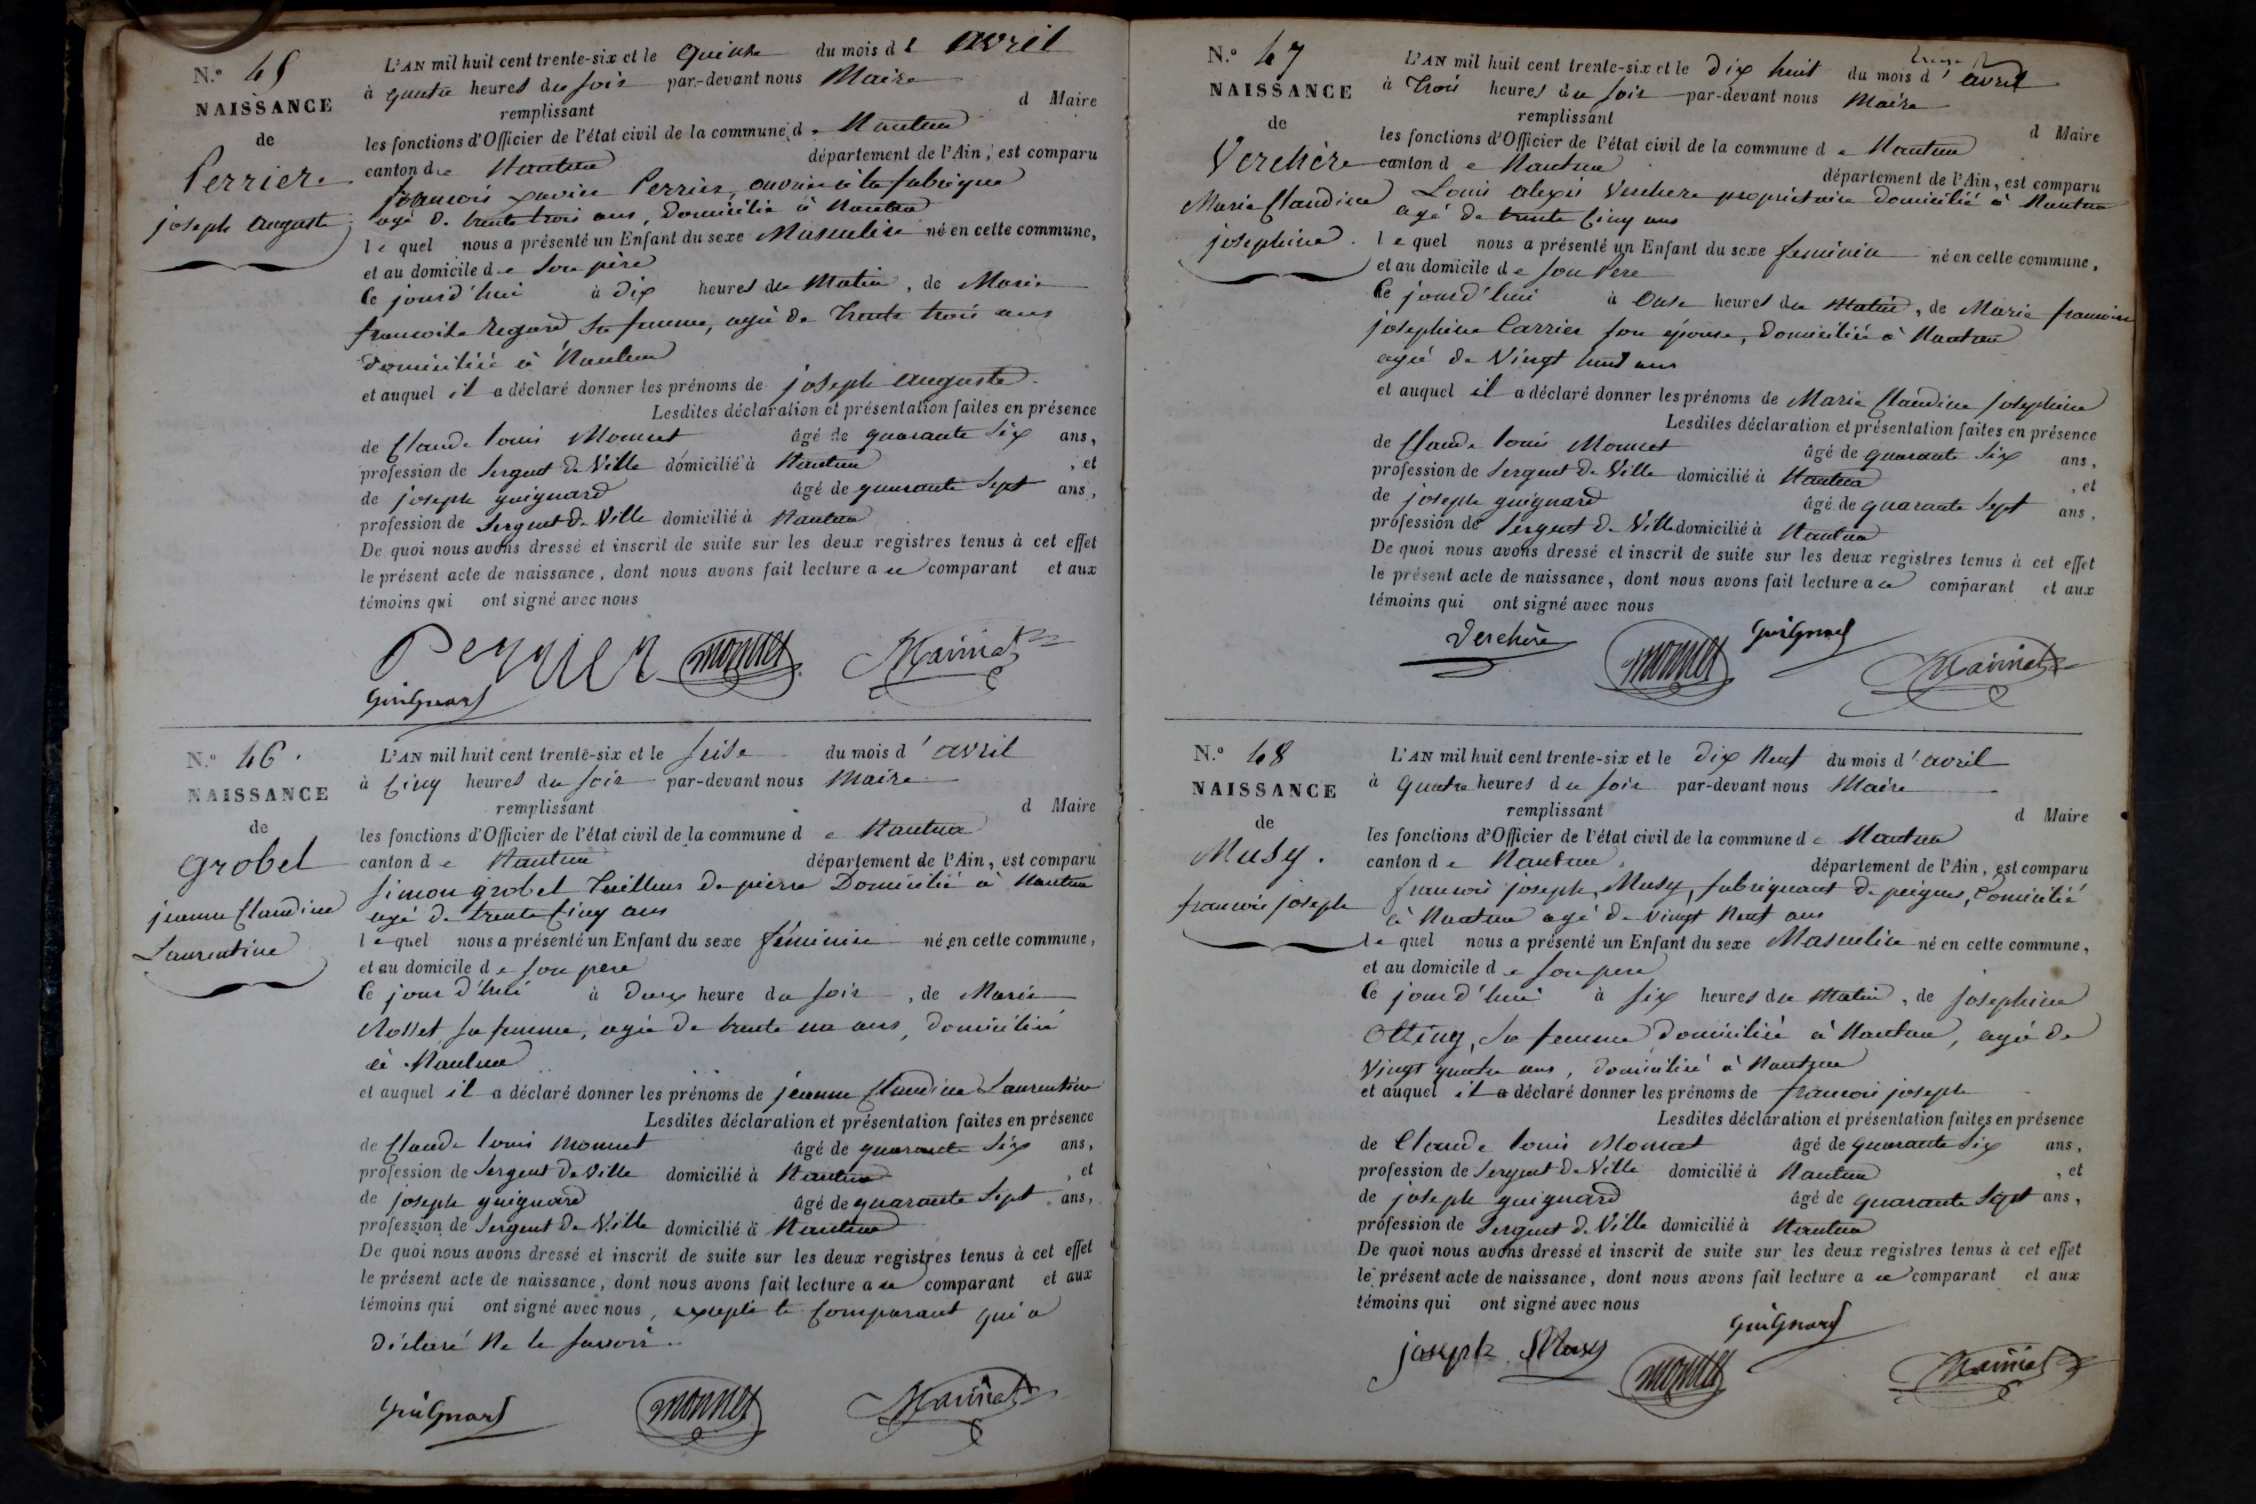 N.º 45
NAISSANCE
de
Perrier
joseph auguste
L'AN mil huit cent trente-six et le quinze du mois d' avril
à quatre heures du soir par-devant nous Maire
remplissant d Maire
les fonctions d'Officier de l'état civil de la commune de Nantua
canton de Nantua département de l'Ain, est comparu
francois xavier Perrier, ouvrier à la fabrique
agé de trente trois ans, domicilié à Nantua
lequel nous a présenté un Enfant du sexe Masculin né en cette commune,
et au domicile de son père
Ce jourd'hui à dix heures du Matin, de Marie
francoise Regard sa femme, agée de trente trois ans
domiciliée à Nantua
et auquel il a déclaré donner les prénoms de joseph auguste.
Lesdites déclaration et présentation faites en présence
de Claude louis Monnet âgé de quarante six ans,
profession de Sergent de Ville domicilié à Nantua, et
de joseph guignard âgé de quarante sept ans,
profession de Sergent de Ville domicilié à Nantua
De quoi nous avons dressé et inscrit de suite sur les deux registres tenus à cet effet
le présent acte de naissance, dont nous avons fait lecture a ce comparant et aux
témoins qui ont signé avec nous
Perrier monnet
Guignard
N.º 46.
NAISSANCE
de
grobel
jeanne Claudine
Laurentine
L'AN mil huit cent trente-six et le seize du mois d' avril
à Cinq heures du soir par-devant nous Maire
remplissant d Maire
les fonctions d'Officier de l'état civil de la commune de Nantua
canton de Nantua département de l'Ain, est comparu
Simon grobel tailleur de pierre Domicilié à Nantua
agé de trente Cinq ans
lequel nous a présenté un Enfant du sexe féminin né en cette commune,
et au domicile de son pere
Ce jour d'hui à deux heure du soir, de Marie
Rosset sa femme, agée de trente un ans, domiciliée
à Nantua
et auquel il a déclaré donner les prénoms de jeanne Claudine Laurentine
Lesdites déclaration et présentation faites en présence
de Claude louis Monnet âgé de quarante six ans,
profession de Sergent de Ville domicilié à Nantua, et
de joseph guignard âgé de quarante sept ans,
profession de Sergent de Ville domicilié à Nantua
De quoi nous avons dressé et inscrit de suite sur les deux registres tenus à cet effet
le présent acte de naissance, dont nous avons fait lecture a ce comparant et aux
témoins qui ont signé avec nous, excepté le Comparant qui a
déclaré Ne le savoir.
Guignard monnet
N.º 47
NAISSANCE
de
Verchère
Marie Claudine
josephine.
L'AN mil huit cent trente-six et le dix huit du mois d' avril
à trois heures du soir par-devant nous Maire
remplissant d Maire
les fonctions d'Officier de l'état civil de la commune de Nantua
canton de Nantua département de l'Ain, est comparu
Louis alexis Verchere propriétaire domicilié à Nantua
agé de trente Cinq ans
lequel nous a présenté un Enfant du sexe feminin né en cette commune,
et au domicile de son Pere
Ce jourd'hui à Onze heures du Matin, de Marie francoise
josephine Carrier son épouse, domiciliée à Nantua
agée de Vingt huit ans
et auquel il a déclaré donner les prénoms de Marie Claudine josephine
Lesdites déclaration et présentation faites en présence
de Claude louis Monnet âgé de quarante six ans,
profession de Sergent de Ville domicilié à Nantua, et
de joseph guignard âgé de quarante sept ans,
profession de Sergent de Ville domicilié à Nantua
De quoi nous avons dressé et inscrit de suite sur les deux registres tenus à cet effet
le présent acte de naissance, dont nous avons fait lecture a ce comparant et aux
témoins qui ont signé avec nous
Verchère monnet Guignard
N.º 48
NAISSANCE
de
Musy.
francois joseph
L'AN mil huit cent trente-six et le dix Neuf du mois d' avril
à quatre heures du soir par-devant nous Maire
remplissant d Maire
les fonctions d'Officier de l'état civil de la commune de Nantua
canton de Nantua, département de l'Ain, est comparu
francois joseph Musy, fabriquant de peignes, Domicilié
à Nantua agé de vingt Neuf ans
lequel nous a présenté un Enfant du sexe Masculin né en cette commune,
et au domicile de son pere
Ce jourd'hui à six heures du Matin, de josephine
sa femme domiciliée à Nantua, agée de
Vingt quatre ans, domiciliée à Nantua
et auquel il a déclaré donner les prénoms de francois joseph
Lesdites déclaration et présentation faites en présence
de Claude louis Monnet âgé de quarante six ans,
profession de Sergent de Ville domicilié à Nantua, et
de joseph guignard âgé de quarante Sept ans,
profession de Sergent de Ville domicilié à Nantua
De quoi nous avons dressé et inscrit de suite sur les deux registres tenus à cet effet
le présent acte de naissance, dont nous avons fait lecture a ce comparant et aux
témoins qui ont signé avec nous
Guignard
joseph Musy monnet